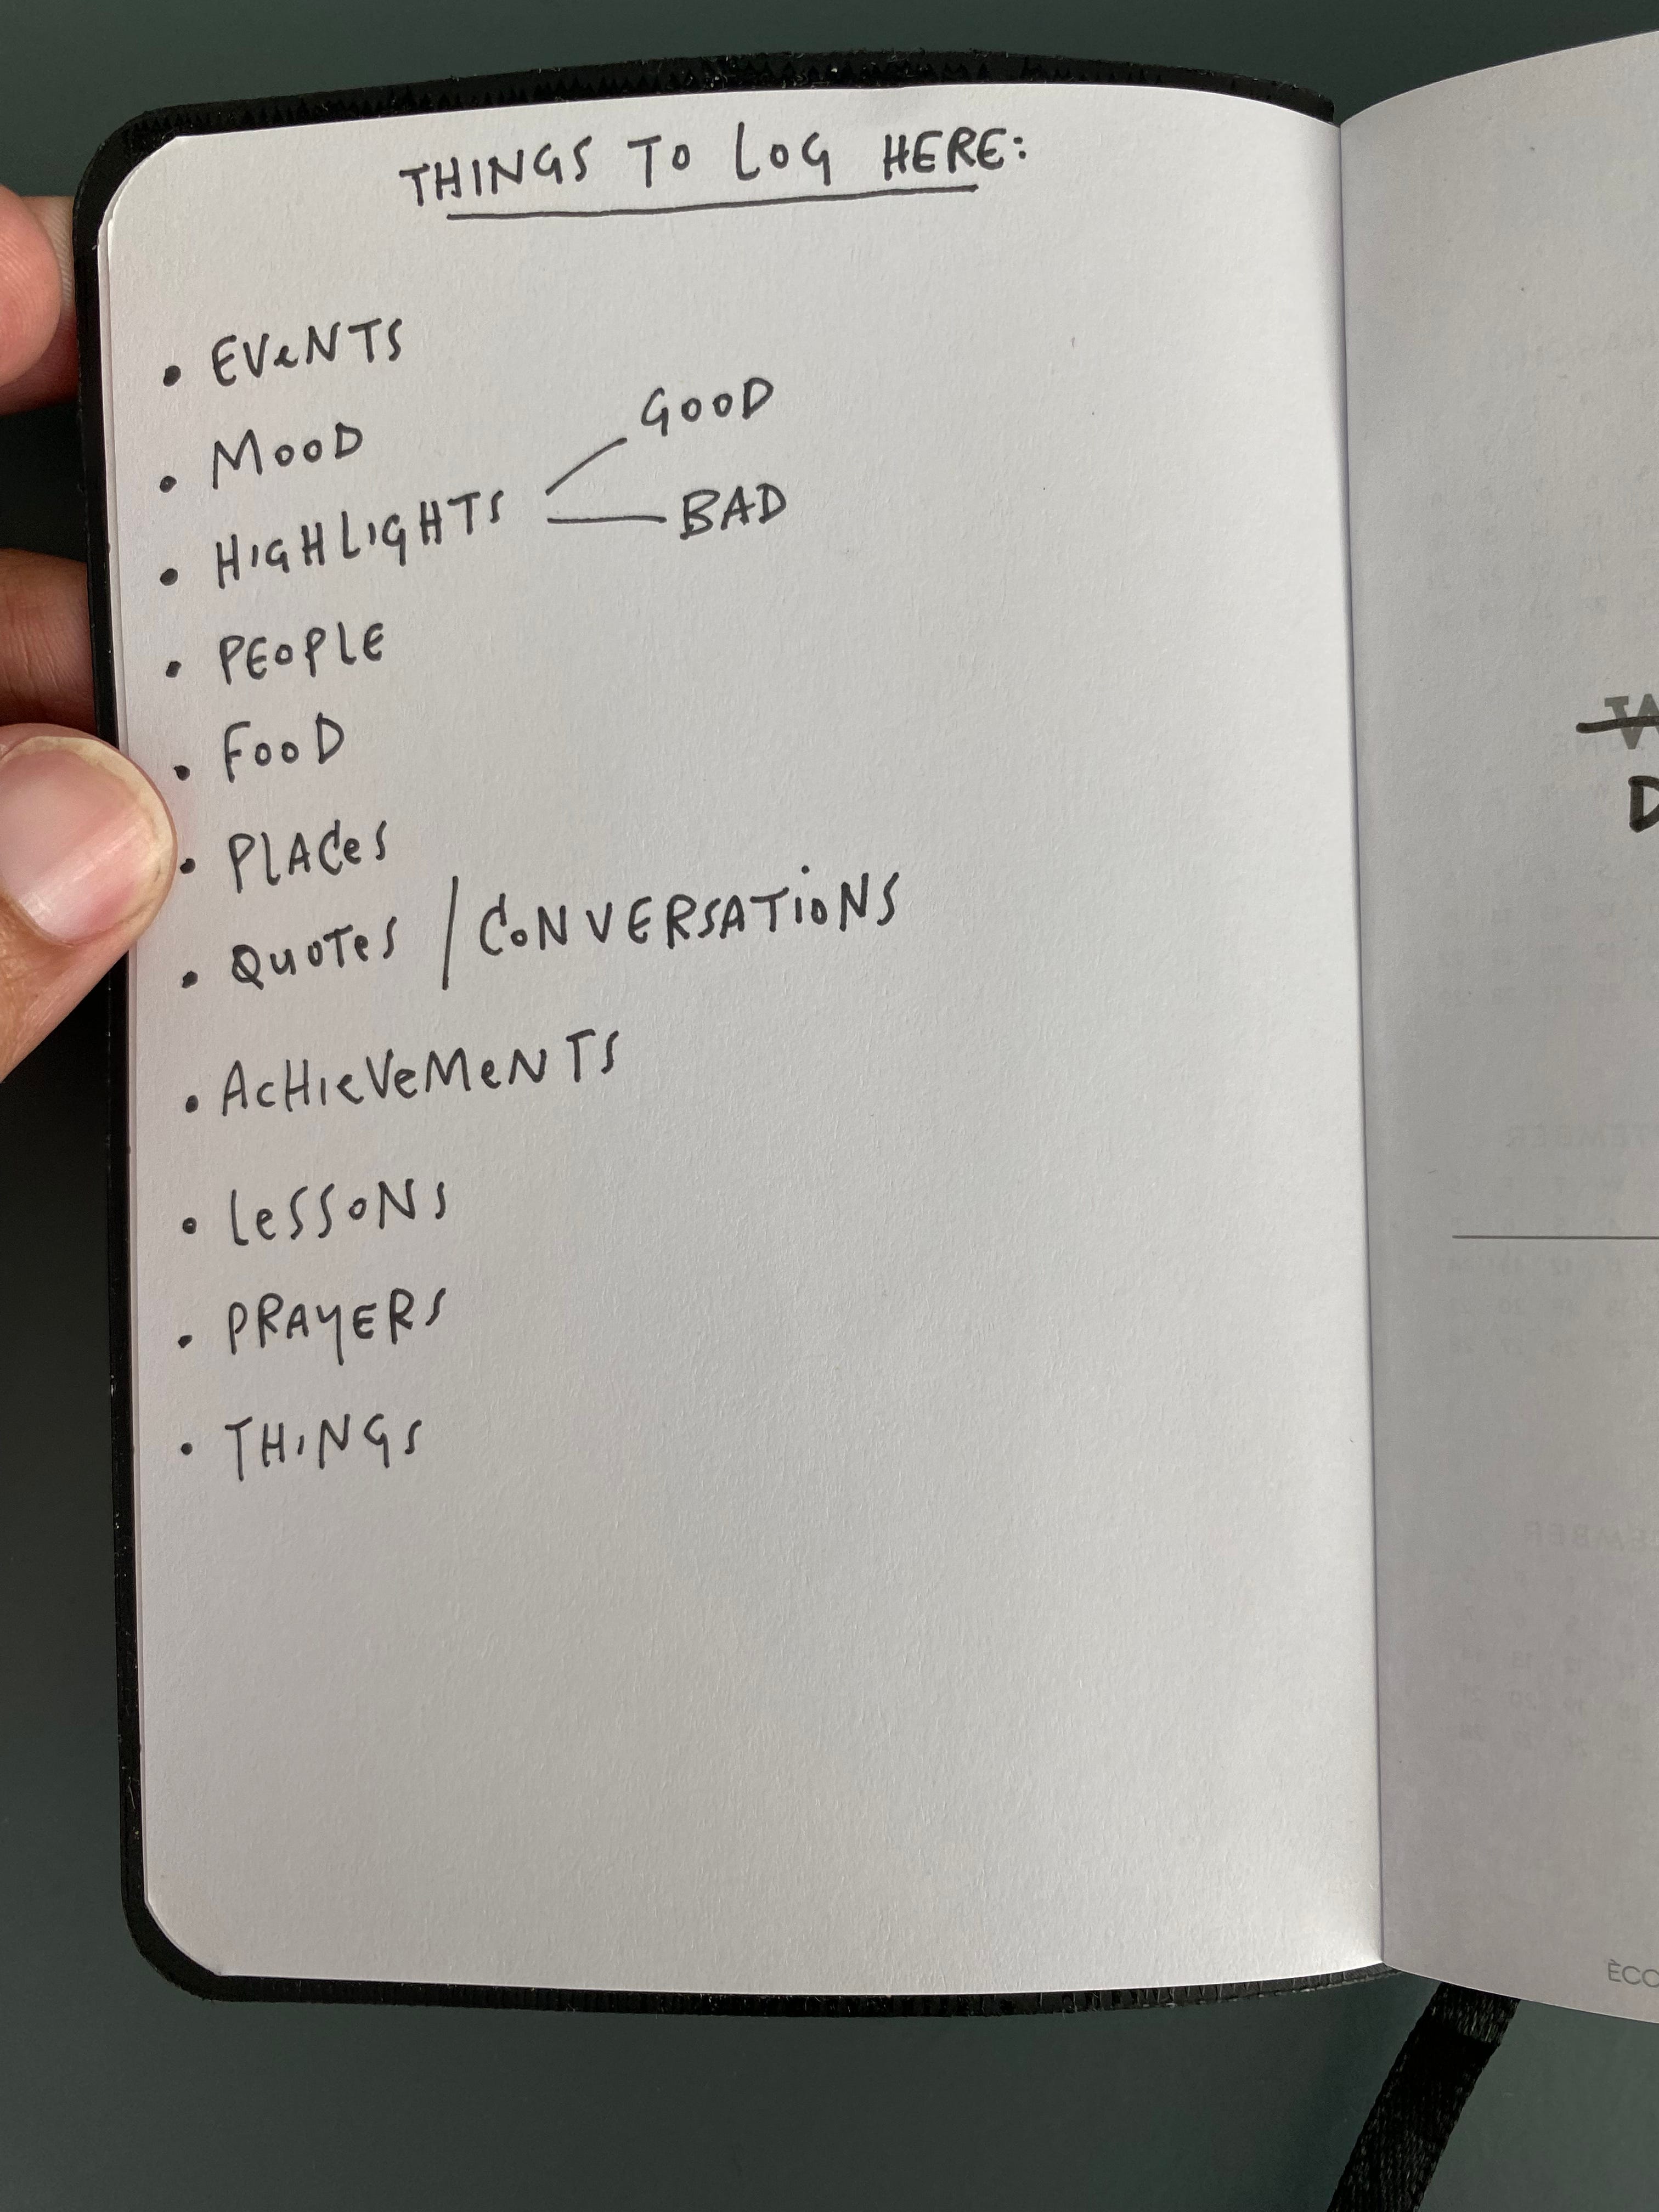 THINGS TO LOG HERE:
• EVENTS
• MOOD
• HIGHLIGHTS
GOOD
BAD
• PEOPLE
• FOOD
• PLACES
• QUOTES / CONVERSATIONS
• ACHIEVEMENTS
• LESSONS
• PRAYERS
• THINGS